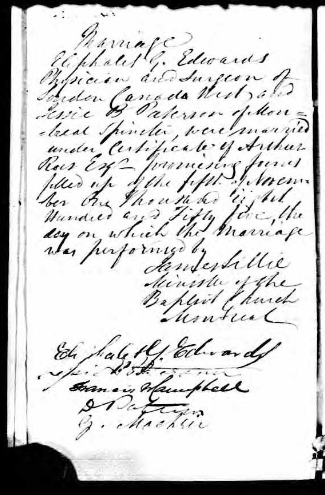 Marriage
Eliphalet G. Edwards
Physician and Surgeon of
London Canada West, and
Jessie B Paterson of Mon=
treal Spinster, were married
under Certificate of Arthur
Ross Esq
filled up of the fifth of Novem
ber One Thousand Eight
Hundred and Fifty five the
day on which the marriage
was performed by
James Lillie
Minister of the
Baptist Church
Montreal
Eliphalet G. Edwards
Francis Campbell
D Paterson